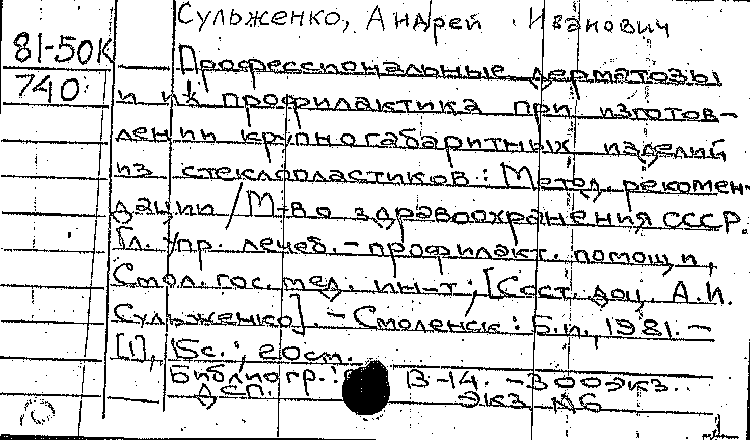 Сульженко, Андрей Иванович
81-50К
Профессиональные дерматозы
740
и их профилактика при изготов-
лении крупногабаритных изделий
из стеклопластиков: Метод. рекомен-
дации / М-во здравоохранения СССР.
Гл. упр. лечеб.-профилакт. помощи,
Смол. гос. мед. ин-т; [Сост. доц. А.И.
Сульженко]. - Смоленск: Б.и., 1981. -
[1], 15с.; 20см.
Библиогр.: с. 13-14. - 300экз.
ДСП. экз. МБ